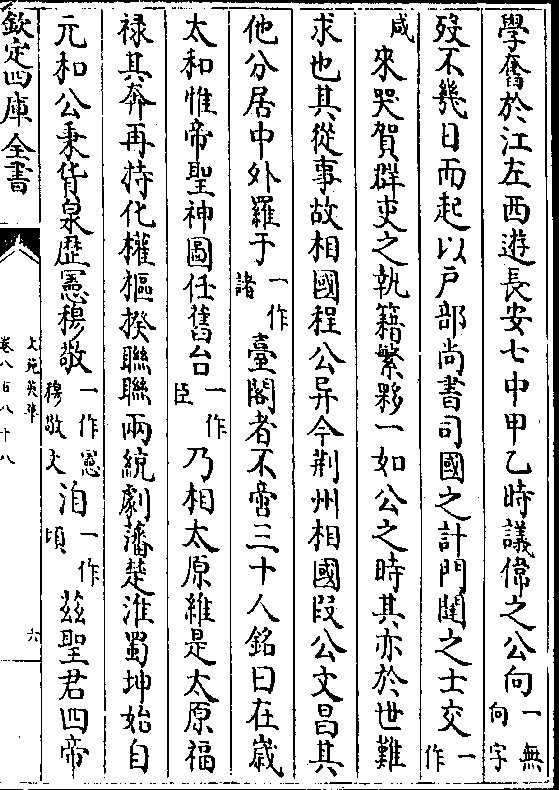 學奮於江左西遊長安七中甲乙時議偉之公向一無向字
歿不幾日而起以戸部尚書司國之計門闥之士交一作
咸來哭賀群吏之執籍繁夥一如公之時其亦於世難
求也其從事故相國程公异今荆州相國段公文昌其
他分居中外羅于一作諸臺閣者不啻三十人銘曰在嵗
太和惟帝聖神圖任舊台一作臣乃相太原維是太原福
禄其奔再持化權樞揆聯聯兩統劇藩楚淮蜀坤始自
元和公秉貨泉歴憲穆敬一作憲穆敬文洎一作頃兹聖君四帝
欽定四庫全書
文苑英華
卷八百八十八
六